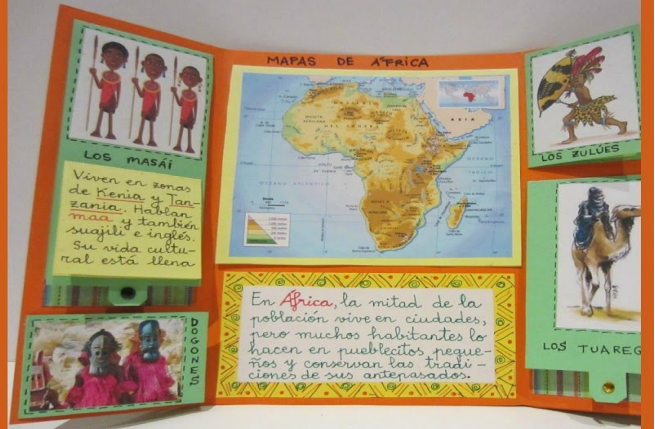 LOS MASÁI
Viven en zonas
de Kenia y Tan-
zania. Hablan
maa y también
suajili e inglés.
Su vida cultu-
ral está llena
DOGONES
MAPAS DE AFRICA
ASIA
En África, la mitad de la
población vive en ciudades,
pero muchos habitantes lo
hacen en pueblecitos peque-
ños y conservan las tradi-
ciones de sus antepasados.
LOS ZULÚES
LOS TUAREG